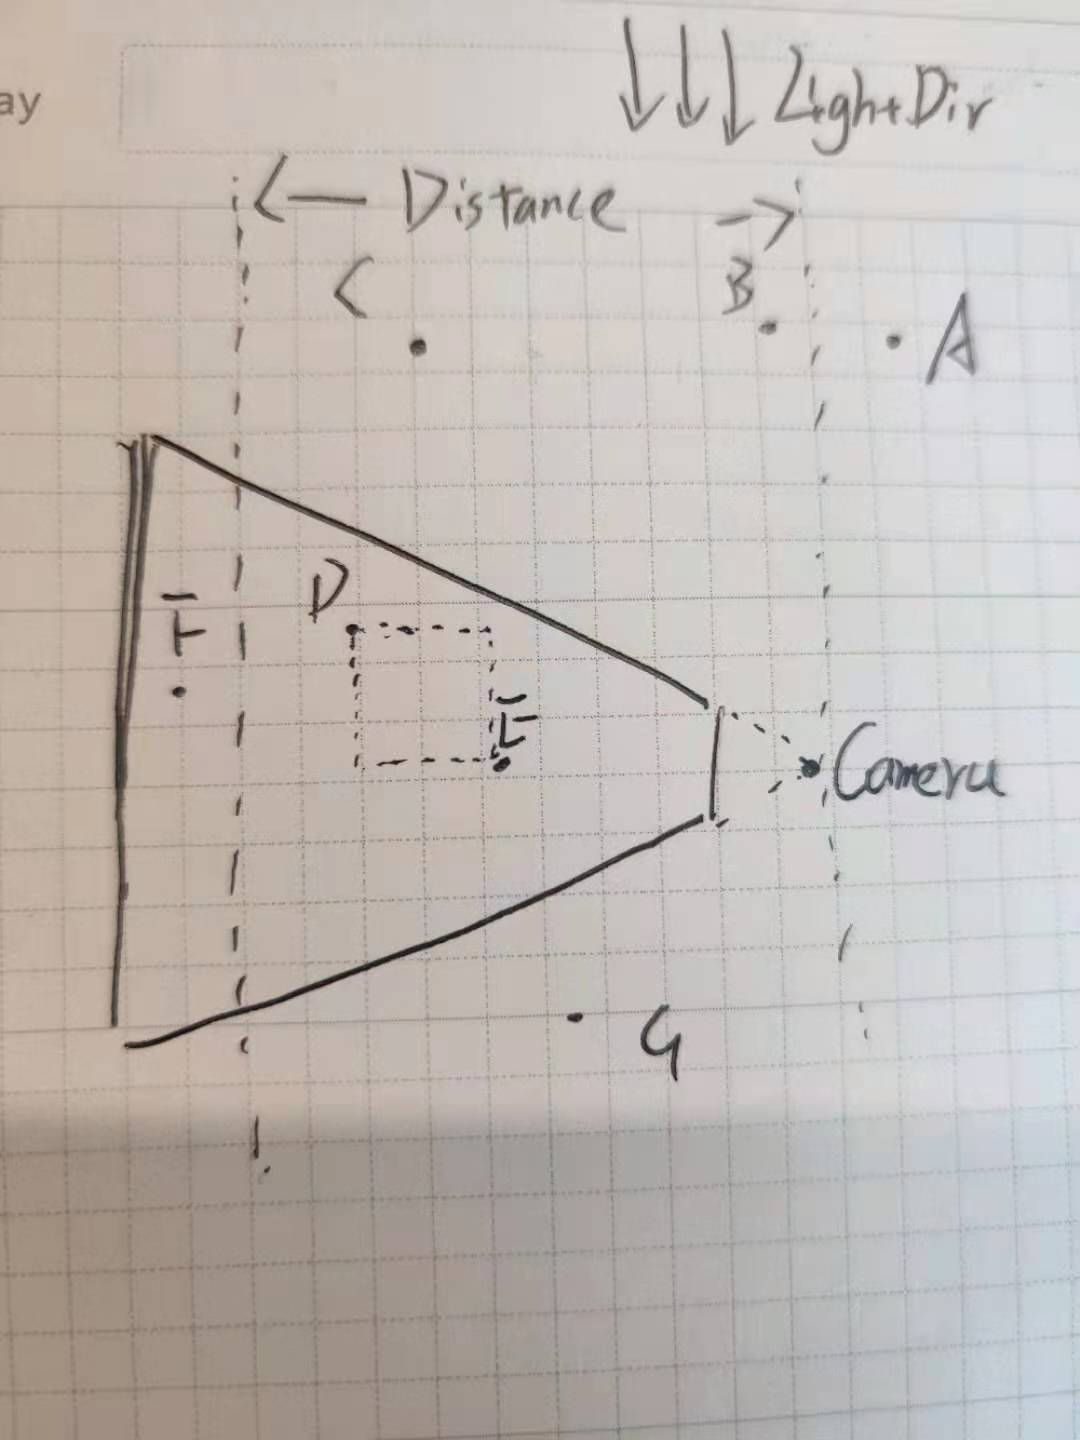 ay
LightDir
Distance
C
B
A
D
F
E
Camera
G